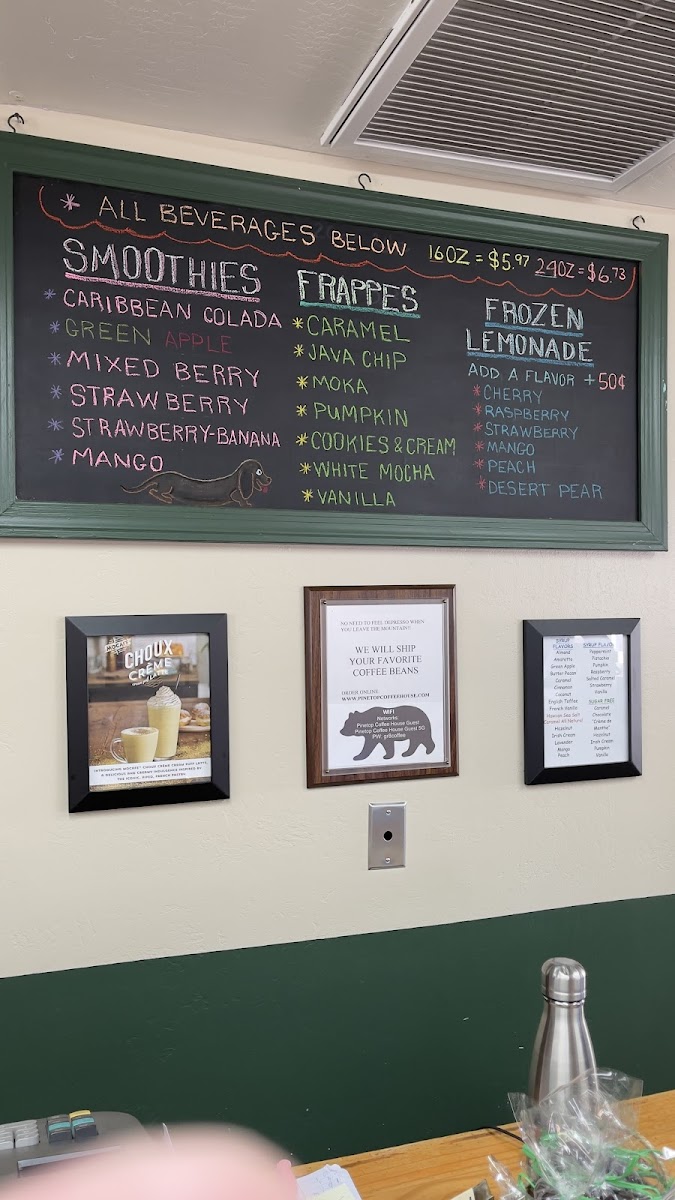 * ALL BEVERAGES BELOW 16OZ = $5.97 24OZ = $6.73
SMOOTHIES
* CARIBBEAN COLADA
* GREEN APPLE
* MIXED BERRY
* STRAWBERRY
* STRAWBERRY-BANANA
* MANGO
FRAPPES
* CARAMEL
* JAVA CHIP
* MOKA
* PUMPKIN
* COOKIES & CREAM
* WHITE MOCHA
* VANILLA
FROZEN
LEMONADE
ADD A FLAVOR + 50¢
* CHERRY
* RASPBERRY
* STRAWBERRY
* MANGO
* PEACH
* DESERT PEAR
CHOUX
CRÈME
NO NEED TO FEEL DEPRESSO WHEN
YOU LEAVE THE MOUNTAIN!!
WE WILL SHIP
YOUR FAVORITE
COFFEE BEANS
ORDER ONLINE
WWW.PINETOPCOFFEEHOUSE.COM
WIFI
Networks:
Pinetop Coffee House Guest
Pinetop Coffee House Guest 5G
PW: gr8coffee
SYRUP
FLAVORS
Almond
Amaretto
Green Apple
Butter Pecan
Caramel
Cinnamon
Coconut
English Toffee
French Vanilla
Hawaiian Sea Salt
(Caramel All Natural)
Hazelnut
Irish Cream
Lavender
Mango
Peach
SYRUP FLAVORS
Peppermint
Pistachio
Pumpkin
Raspberry
Salted Caramel
Strawberry
Vanilla
SUGAR FREE
Caramel
Chocolate
"Crème de
Menthe"
Hazelnut
Irish Cream
Pumpkin
Vanilla